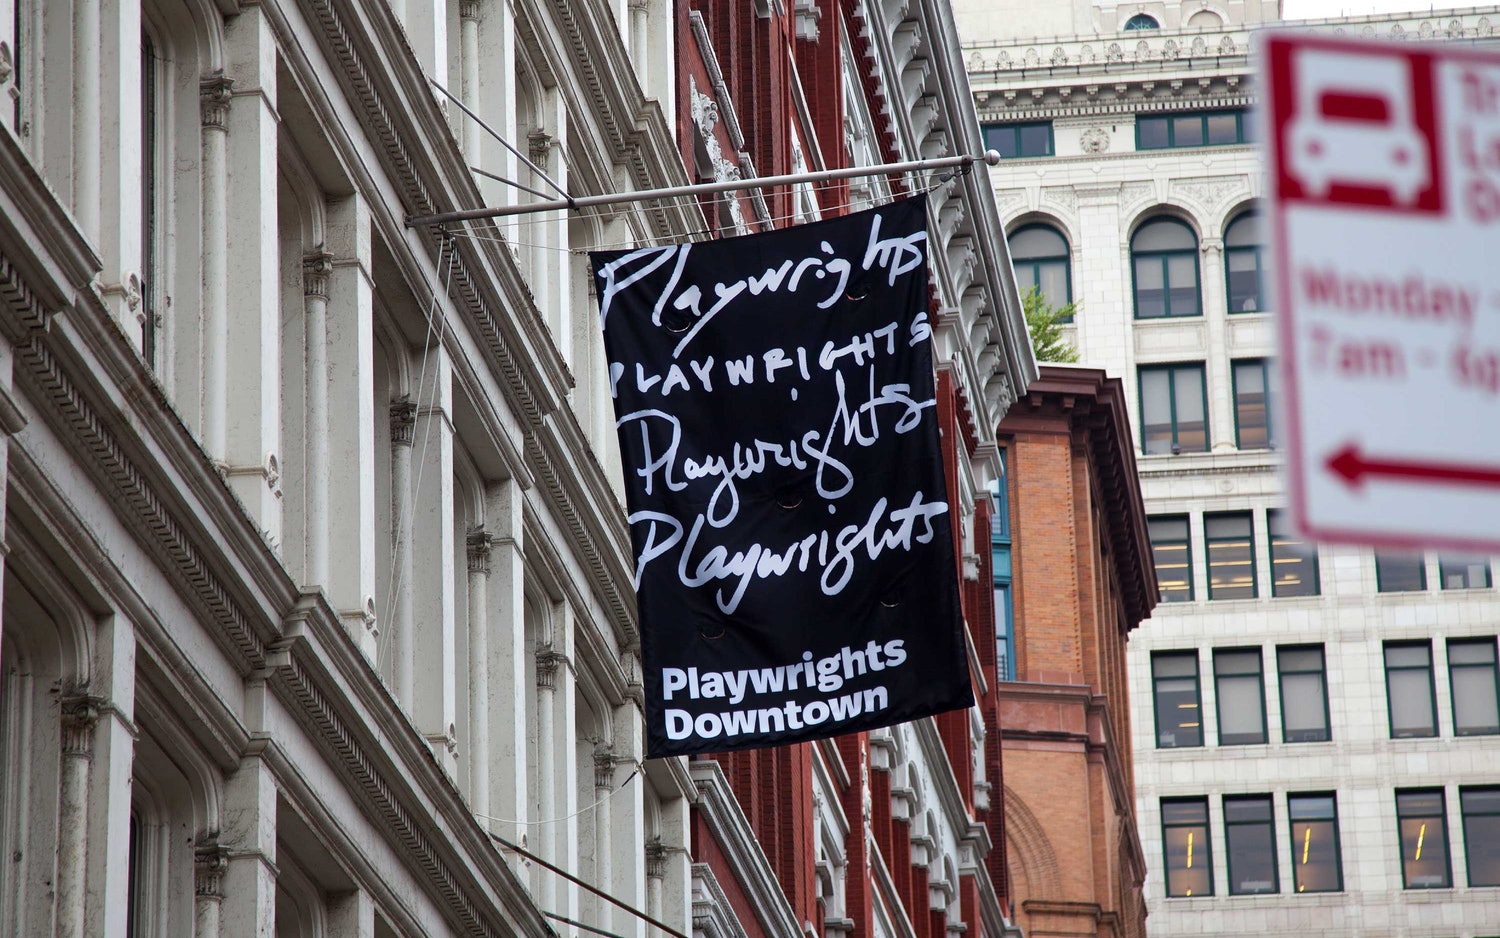 Playwrights
PLAYWRIGHTS
Playwrights
Playwrights
Playwrights
Downtown
Monday
7am -